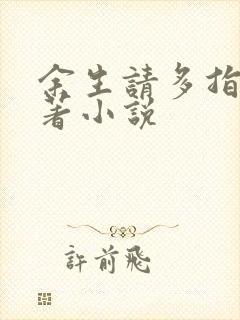 余生請多指
著小説
許前飛